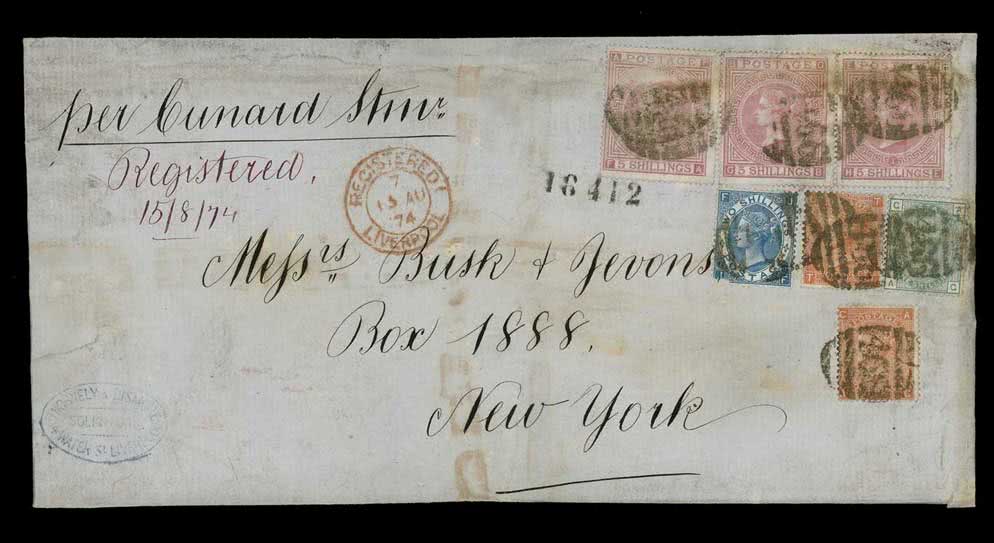 per Cunard Stmr.
Registered,
15/8/74
REGISTERED
7
15 AU
74
LIVERPOOL
16412
POSTAGE
5 SHILLINGS
POSTAGE
5 SHILLINGS
POSTAGE
5 SHILLINGS
TWO SHILLINGS
POSTAGE
POSTAGE
Messrs Busk & Jevons
Box 1888.
New York